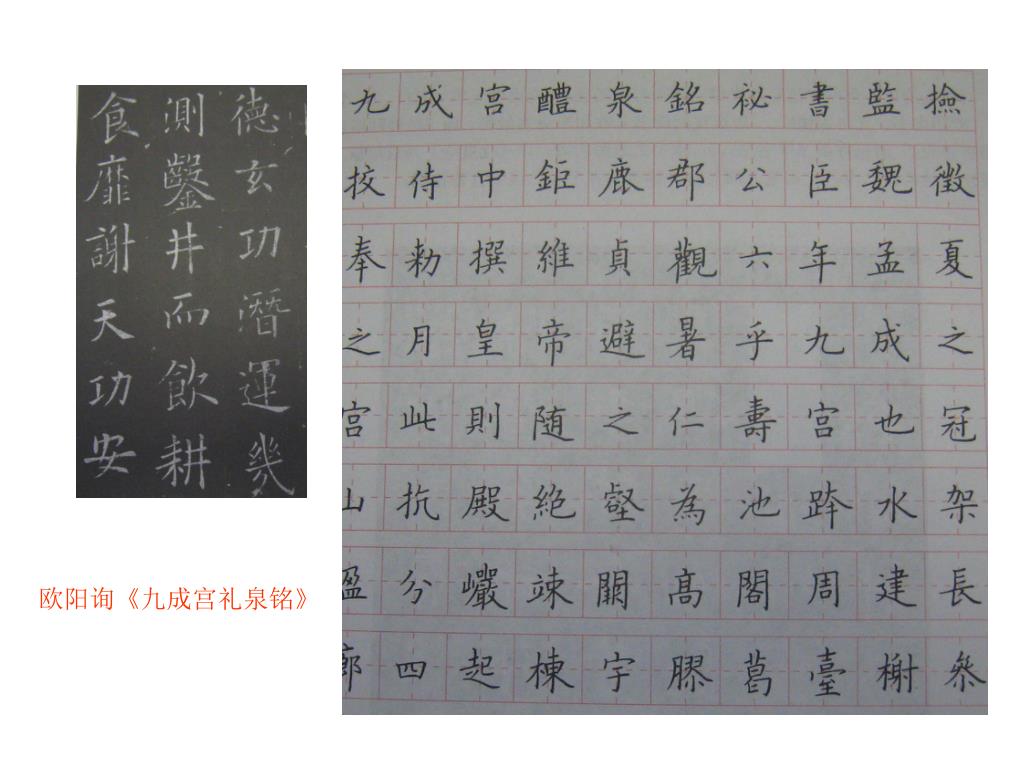 德玄功潛運幾
測鑿井而飲耕
食靡謝天功安
九成宮醴泉銘祕書監撿
挍侍中鉅鹿郡公臣魏徵
奉勑撰維貞觀六年孟夏
之月皇帝避暑乎九成之
宮此則随之仁壽宮也冠
山抗殿絕壑為池跨水架
楹分巖竦闕高閣周建長
廊四起棟宇膠葛臺榭參
欧阳询《九成宫礼泉铭》